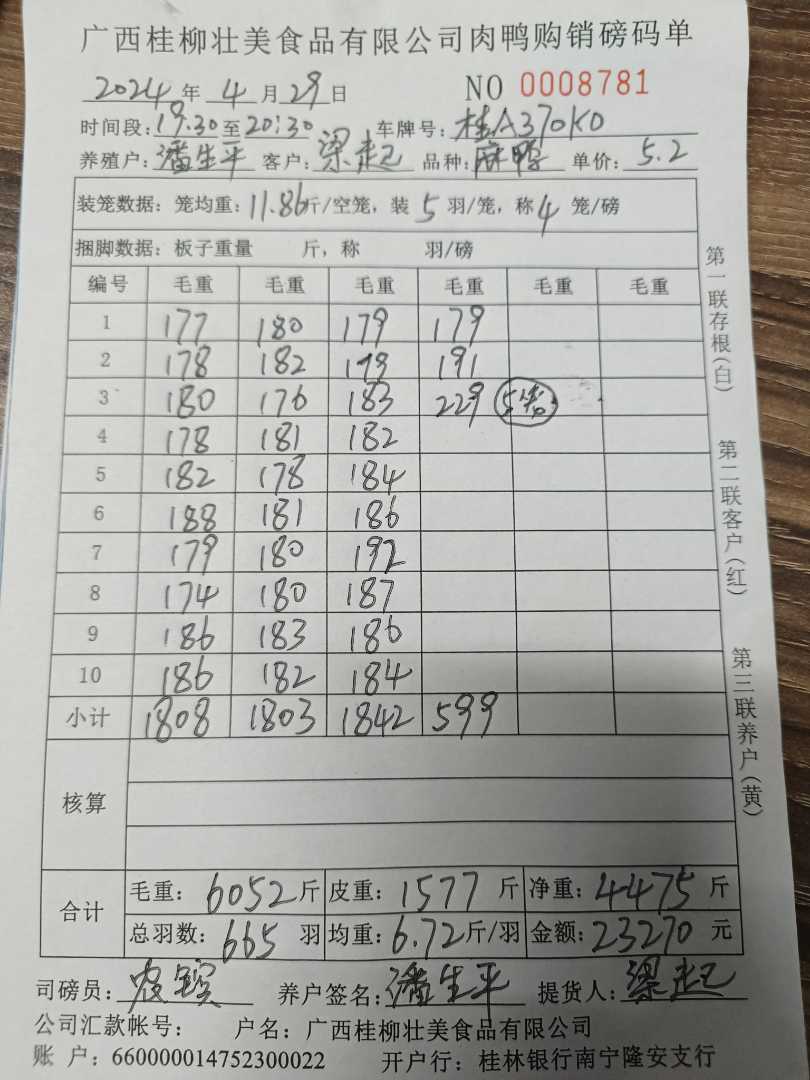 广西桂柳壮美食品有限公司肉鸭购销磅码单
2024 年 4 月 29 日 NO 0008781
时间段: 19:30 至 20:30 车牌号: 桂A370K0
养殖户: 潘生平 客户: 梁起 品种: 麻鸭 单价: 5.2
装笼数据: 笼均重: 11.86斤/空笼, 装 5 羽/笼, 称 4 笼/磅
捆脚数据: 板子重量 斤, 称 羽/磅
编号 毛重 毛重 毛重 毛重 毛重 毛重
1 177 180 179 179
2 178 182 179 191
3 180 176 183 229 5笼
4 178 181 182
5 182 178 184
6 188 181 186
7 179 180 192
8 174 180 187
9 186 183 186
10 186 182 184
小计 1808 1803 1842 599
核算
合计
毛重: 6052 斤 皮重: 1577 斤 净重: 4475 斤
总羽数: 665 羽 均重: 6.72 斤/羽 金额: 23270 元
司磅员: 农宝宾 养户签名: 潘生平 提货人: 梁起
公司汇款帐号: 户名: 广西桂柳壮美食品有限公司
账 户: 660000014752300022 开户行: 桂林银行南宁隆安支行
第一联存根(白)
第二联客户(红)
第三联养户(黄)